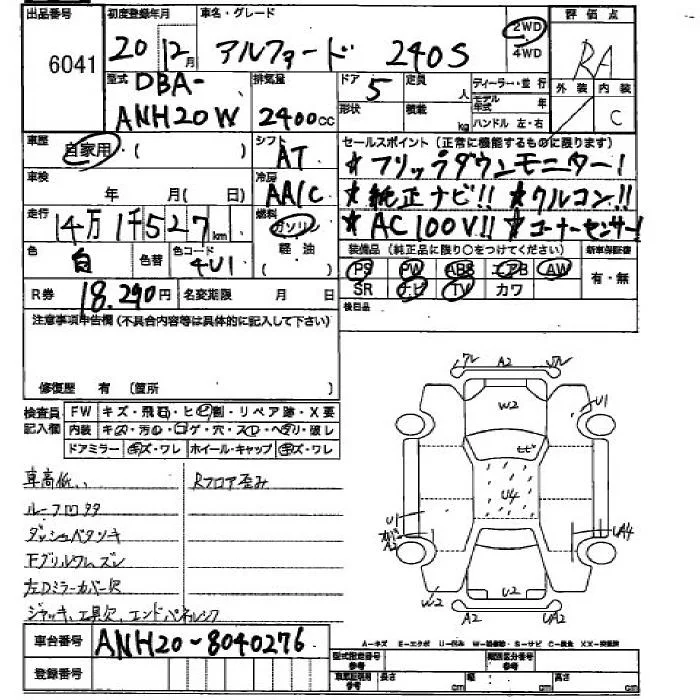 出品番号 初度登録年月 車名・グレード 評価点
6041 20年12月 アルファード 240S 2WD 4WD RA
型式 DBA- ANH20W 排気量 2400cc ドア 5 形状 定員 人 積載 kg ディーラー・並行 モデル年式 年 ハンドル 左・右 外装 内装 C
車歴 自家用・( ) シフト AT セールスポイント(正常に機能するものに限ります)
★フリップダウンモニター!
車検 年 月(日) 冷房 AA/C ★純正ナビ!! ★クルコン!!
走行 14万1千527km 燃料 ガソリン 軽油 ( ) ★AC100V!! ★コーナーセンサー!
色 白 色替 色コード 4U1 装備品(純正品に限り○をつけてください) 新車保証書
PS PW ABS エアB AW 有・無
R券 18,290円 名変期限 月 日 SR ナビ TV カワ
注意事項申告欄(不具合内容等は具体的に記入して下さい) 後日品
修復歴 有(箇所 )
検査員記入欄 FW キズ・飛石・ヒビ割・リペア跡・X要
内装 キズ・汚れ・コゲ・穴・スレ・ヘタリ・破レ
ドアミラー キズ・ワレ ホイール・キャップ キズ・ワレ
車高低い、 Rフロア歪み
ルーフ凹多
ダッシュベタツキ
Fグリルワレ
左Dミラーカバー欠
ジャッキ、工具欠、エンドパネル
A2
W2
U1
ヒビ
U4
U1
A2
UA4
W2
U2
A2 UA2
車台番号 ANH20-8040276
登録番号
A=キズ E=エクボ U=凹み W=補修跡 S=サビ C=腐食 XX=交換済
型式指定番号 参考 類別区分番号 参考
車庫証明用 参考 長さ cm 幅 cm 高さ cm